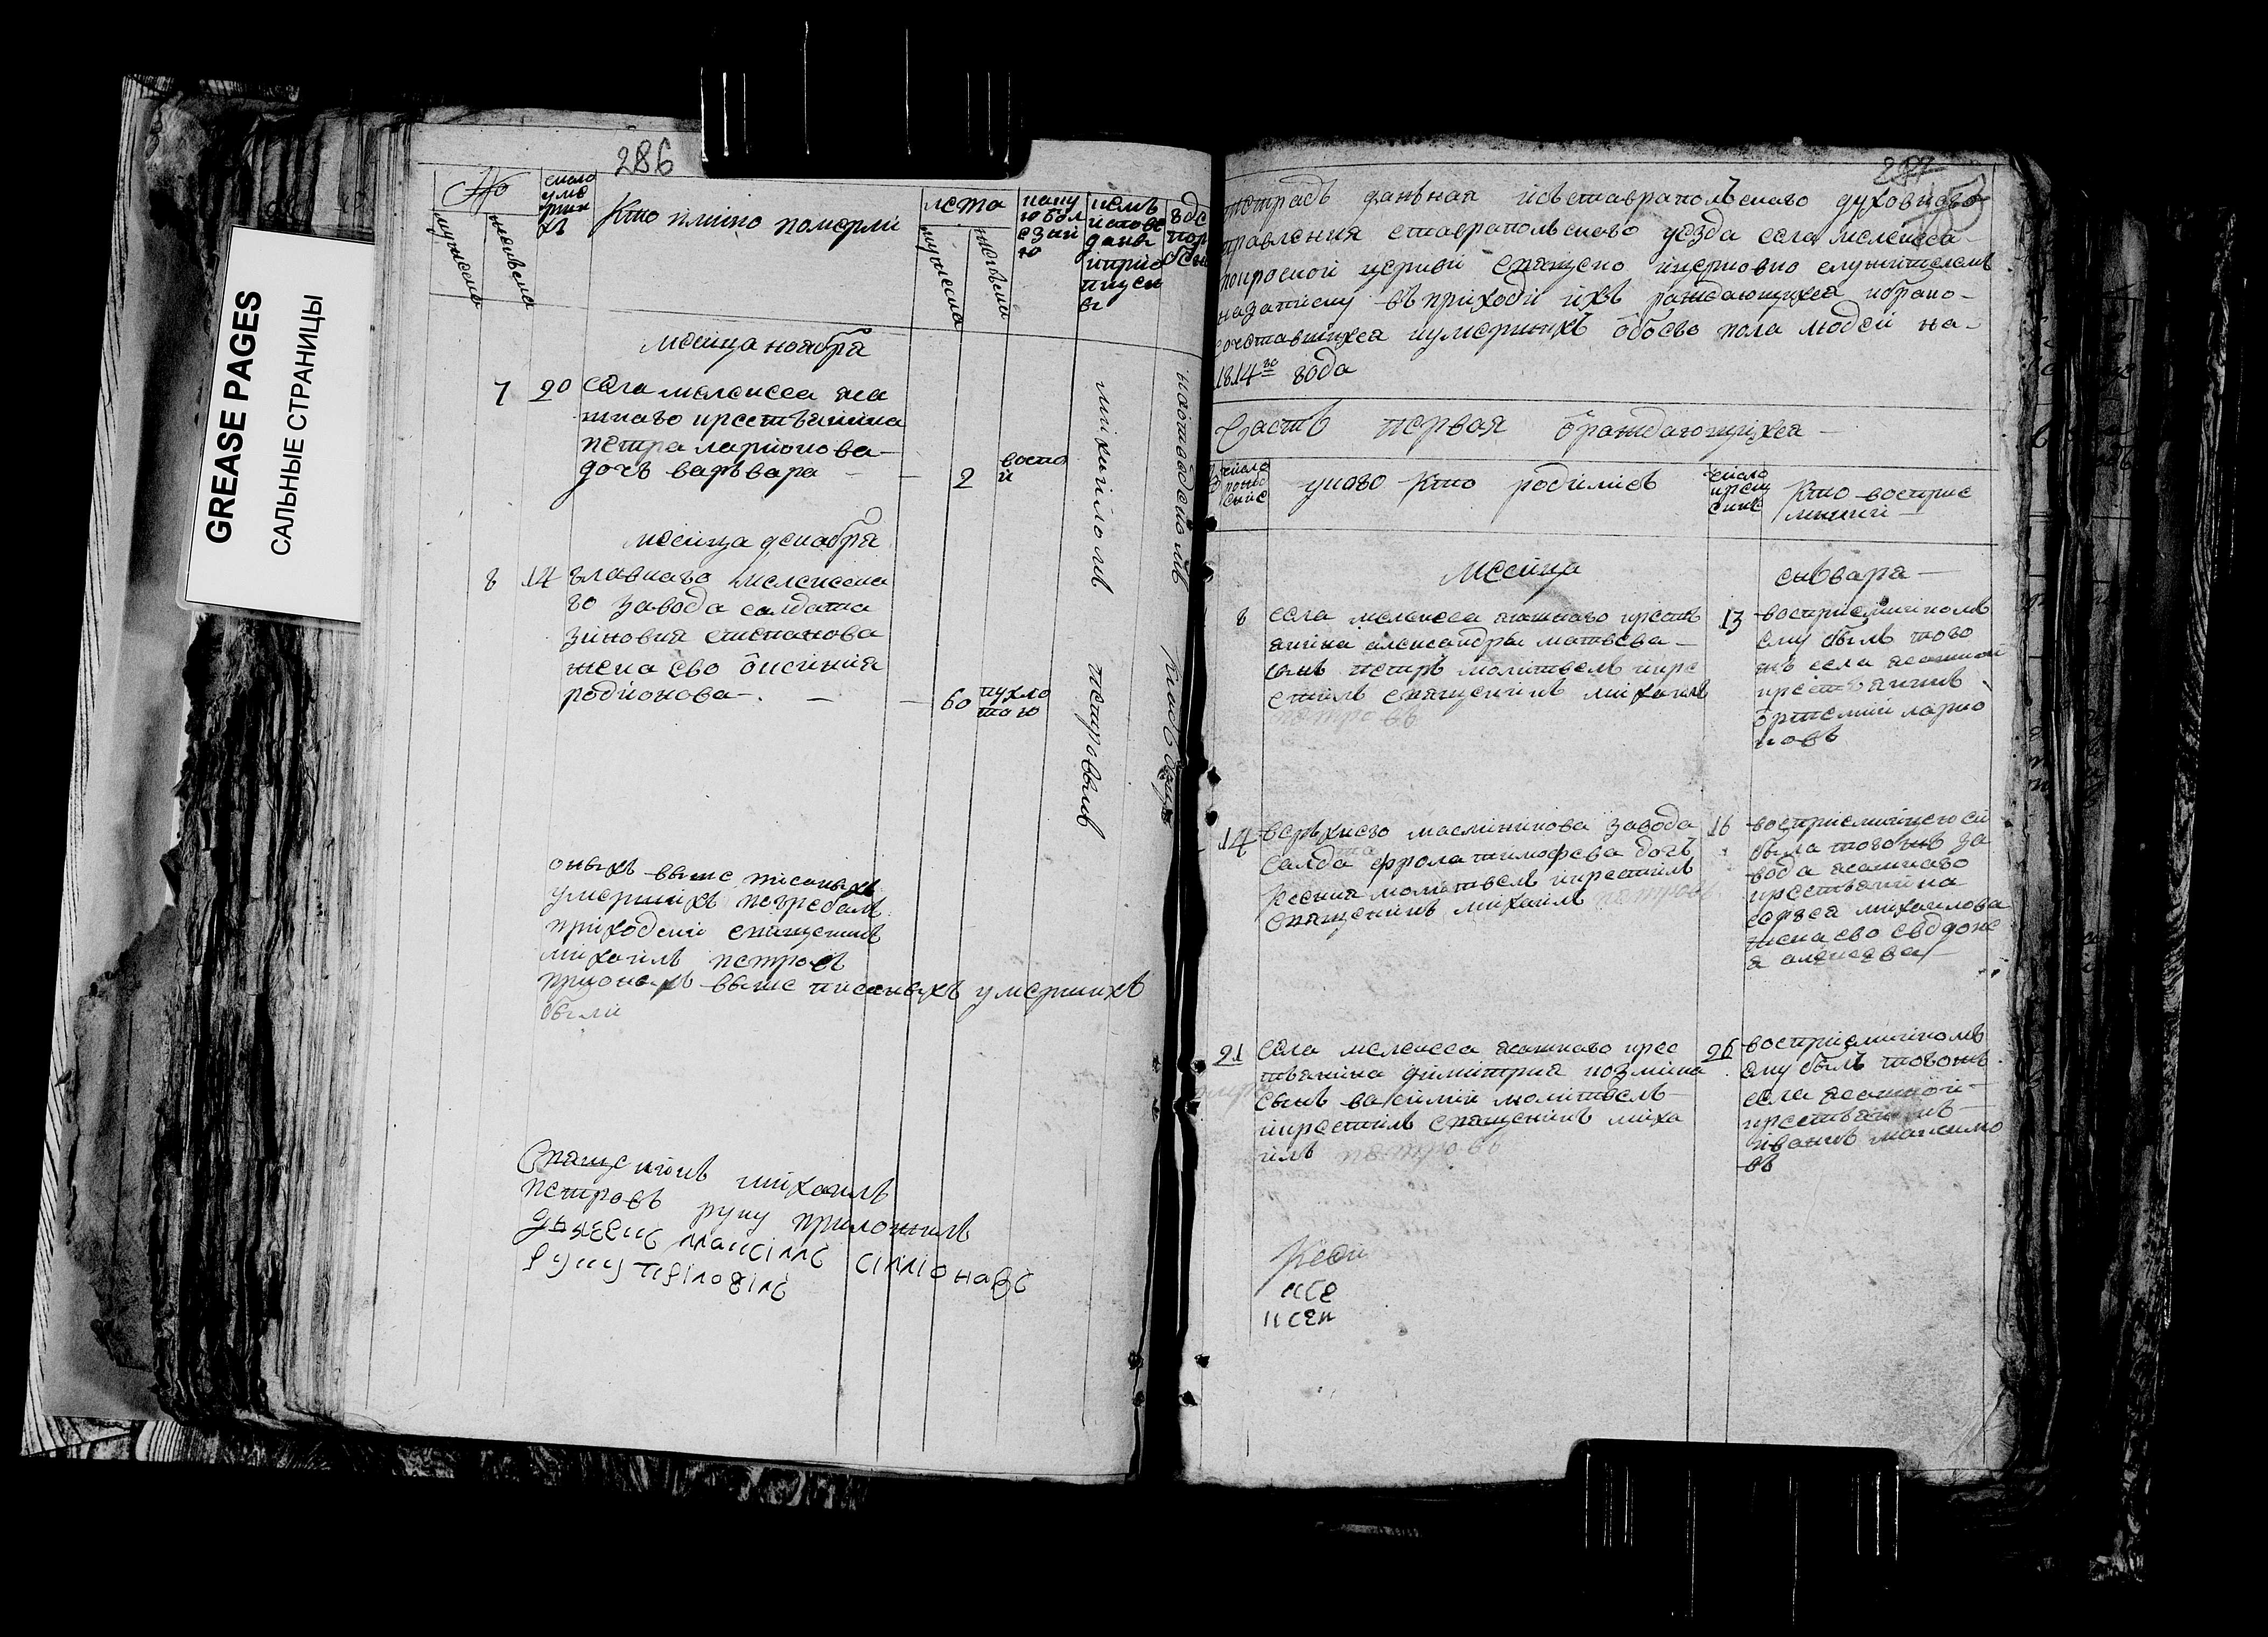 GREASE PAGES
САЛЬНЫЕ СТРАНИЦЫ
286
№
число умершихъ
мужеска
женъска
Кто имяно померли
лета
мужеска
женъска
какую болезнию
кемъ
месяца ноября
7 20 села мелекеса яса
шнаго крестьянина
петра ларионова
дочь варъвара — — 2 воспо
й
месяца декабря
8 14 главнаго мелекеска
го завода салдата
зиновия степанова
жена ево ѯения
родионова — — 60 пухло
тою
михаиломъ петровымъ
оныхъ выше писаныхъ
умершихъ погребалъ
приходский священникъ
михаилъ петровъ
при оныхъ выше писаныхъ умершихъ
были
Священникъ михаилъ
петровъ руку приложилъ
дьячекъ максимъ симионавъ
руку приложилъ
тетрадь данъная изъ ставрапольскаго духовнаго
правления ставрапольскаго уезда села мелекеса
покроской церкви священно и церковно служителемъ
на записку въ приходи ихъ раждающихся и брако
сочетавшихся и умершихъ обоего пола людей на
1814го года
Часть первая о раждающихся
число рождение
у кого кто родились
число крещение
Кто восприемники
Месяца енъваря
8 села мелекеса яшашнаго кресть
янина александра матвева
сынъ петръ молитвелъ и кре
стилъ священникъ михаилъ
петровъ
13 восприемникомъ
ему былъ того
жъ села ясашной
крестьянинъ
ортемий ларио
новъ
14 верхнего масленикова завода
салдата фрола тимофева дочь
ксения молитвелъ и крестилъ
священникъ михаилъ петровъ
16 восприемницею ей
была того жъ за
вода ясашнаго
крестьянина
сергея михаилова
жена ево евдоке
я алексева
21 села мелекеса ясашнаго крес
тьянина димитрия козмина
сынъ василии молитвелъ
и крестилъ священникъ миха
илъ петровъ
26 восприемникомъ
ему былъ того жъ
села ясашной
крестьянинъ
иванъ максимо
въ